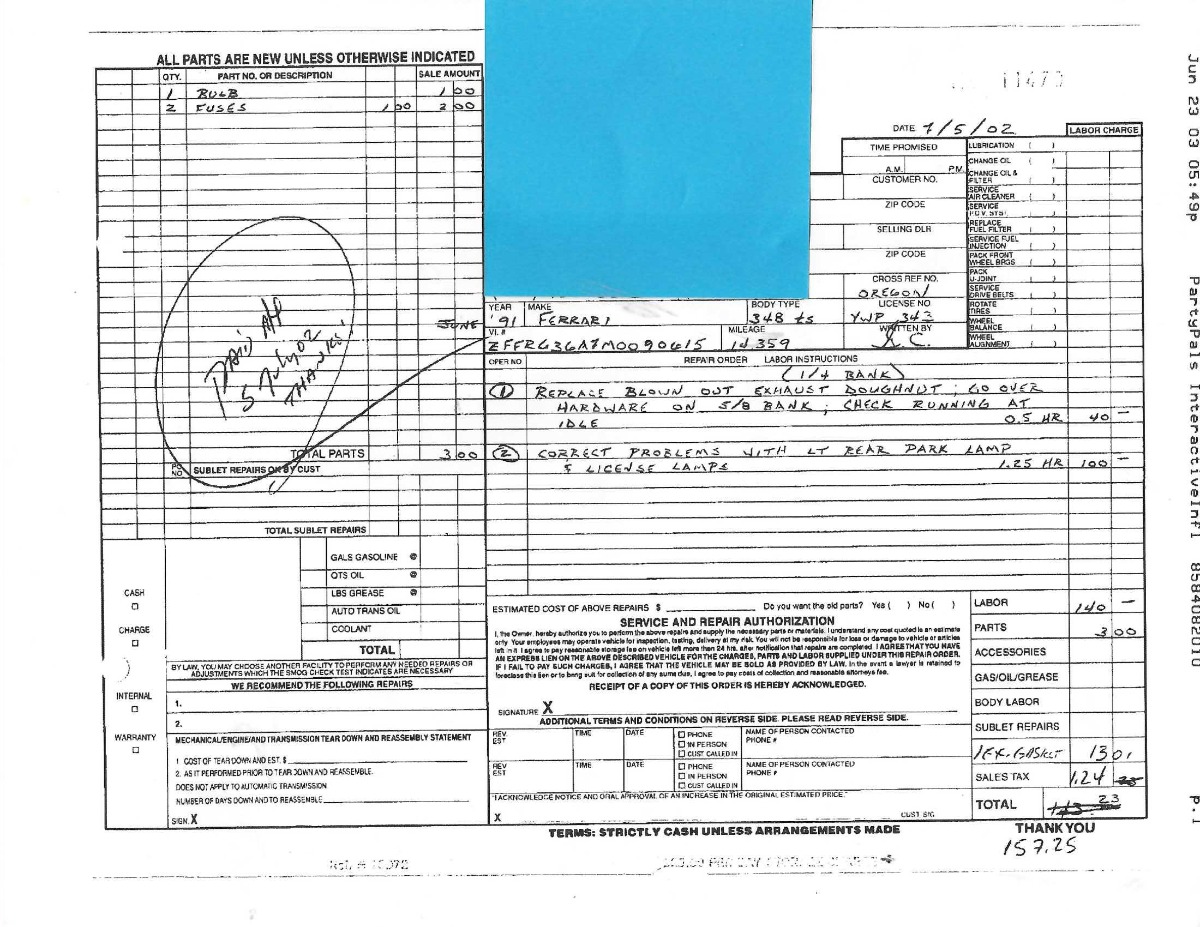 Jun 23 03 05:49p PartyPals InteractiveInfl 8584082010 p.1
ALL PARTS ARE NEW UNLESS OTHERWISE INDICATED
QTY. PART NO. OR DESCRIPTION SALE AMOUNT
1 BULB 1 00
2 FUSES 1 00 2 00
PAID AP
5 July 02
THANKS!
TOTAL PARTS 3 00
PO NO SUBLET REPAIRS OR BY CUST
TOTAL SUBLET REPAIRS
GALS GASOLINE @
QTS OIL @
LBS GREASE @
AUTO TRANS OIL
COOLANT
TOTAL
CASH
CHARGE
INTERNAL
WARRANTY
BY LAW, YOU MAY CHOOSE ANOTHER FACILITY TO PERFORM ANY NEEDED REPAIRS OR
ADJUSTMENTS WHICH THE SMOG CHECK TEST INDICATES ARE NECESSARY
WE RECOMMEND THE FOLLOWING REPAIRS
1.
2.
MECHANICAL/ENGINE/AND TRANSMISSION TEAR DOWN AND REASSEMBLY STATEMENT
1 COST OF TEAR DOWN AND EST. $
2. AS IT PERFORMED PRIOR TO TEAR DOWN AND REASSEMBLE.
DOES NOT APPLY TO AUTOMATIC TRANSMISSION
NUMBER OF DAYS DOWN AND TO REASSEMBLE
SIGN. X
DATE 7/5/02
TIME PROMISED
A.M. P.M.
CUSTOMER NO.
ZIP CODE
SELLING DLR
ZIP CODE
CROSS REF NO.
OREGON
LICENSE NO
YWP 343
WRITTEN BY
LABOR CHARGE
LUBRICATION ( )
CHANGE OIL ( )
CHANGE OIL & FILTER ( )
SERVICE AIR CLEANER ( )
SERVICE P.C.V. SYST. ( )
REPLACE FUEL FILTER ( )
SERVICE FUEL INJECTION ( )
PACK FRONT WHEEL BRGS ( )
PACK U-JOINT ( )
SERVICE DRIVE BELTS ( )
ROTATE TIRES ( )
WHEEL BALANCE ( )
WHEEL ALIGNMENT ( )
JUNE
YEAR MAKE BODY TYPE
'91 FERRARI 348 ts
VI.# MILEAGE
ZFFRG36A7M0090615 14359
OPER NO REPAIR ORDER LABOR INSTRUCTIONS
(1/4 BANK)
1 REPLACE BLOWN OUT EXHAUST DOUGHNUT; GO OVER
HARDWARE ON 5/8 BANK; CHECK RUNNING AT
IDLE 0.5 HR 40 —
2 CORRECT PROBLEMS WITH LT REAR PARK LAMP
& LICENSE LAMPS 1.25 HR 100 —
ESTIMATED COST OF ABOVE REPAIRS $ Do you want the old parts? Yes ( ) No ( )
SERVICE AND REPAIR AUTHORIZATION
I, the Owner, hereby authorize you to perform the above repairs and supply the necessary parts or materials. I understand any cost quoted is an estimate
only. Your employees may operate vehicle for inspection, testing, delivery at my risk. You will not be responsible for loss or damage to vehicle or articles
left in it. I agree to pay reasonable storage fee on vehicle left more than 24 hrs. after notification that repairs are completed. I AGREE THAT YOU HAVE
AN EXPRESS LIEN ON THE ABOVE DESCRIBED VEHICLE FOR THE CHARGES, PARTS AND LABOR SUPPLIED UNDER THIS REPAIR ORDER.
IF I FAIL TO PAY SUCH CHARGES, I AGREE THAT THE VEHICLE MAY BE SOLD AS PROVIDED BY LAW. In the event a lawyer is retained to
foreclose this lien or to bring suit for collection of any sums due, I agree to pay costs of collection and reasonable attorneys fee.
RECEIPT OF A COPY OF THIS ORDER IS HEREBY ACKNOWLEDGED.
SIGNATURE X
ADDITIONAL TERMS AND CONDITIONS ON REVERSE SIDE. PLEASE READ REVERSE SIDE.
REV. EST TIME DATE PHONE IN PERSON CUST CALLED IN NAME OF PERSON CONTACTED PHONE #
REV EST TIME DATE PHONE IN PERSON CUST CALLED IN NAME OF PERSON CONTACTED PHONE #
"I ACKNOWLEDGE NOTICE AND ORAL APPROVAL OF AN INCREASE IN THE ORIGINAL ESTIMATED PRICE."
X CUST SIG
LABOR 140 —
PARTS 3 00
ACCESSORIES
GAS/OIL/GREASE
BODY LABOR
SUBLET REPAIRS
1 EX. GASKET 13 01
SALES TAX 1.24
TOTAL
TERMS: STRICTLY CASH UNLESS ARRANGEMENTS MADE
THANK YOU
157.25